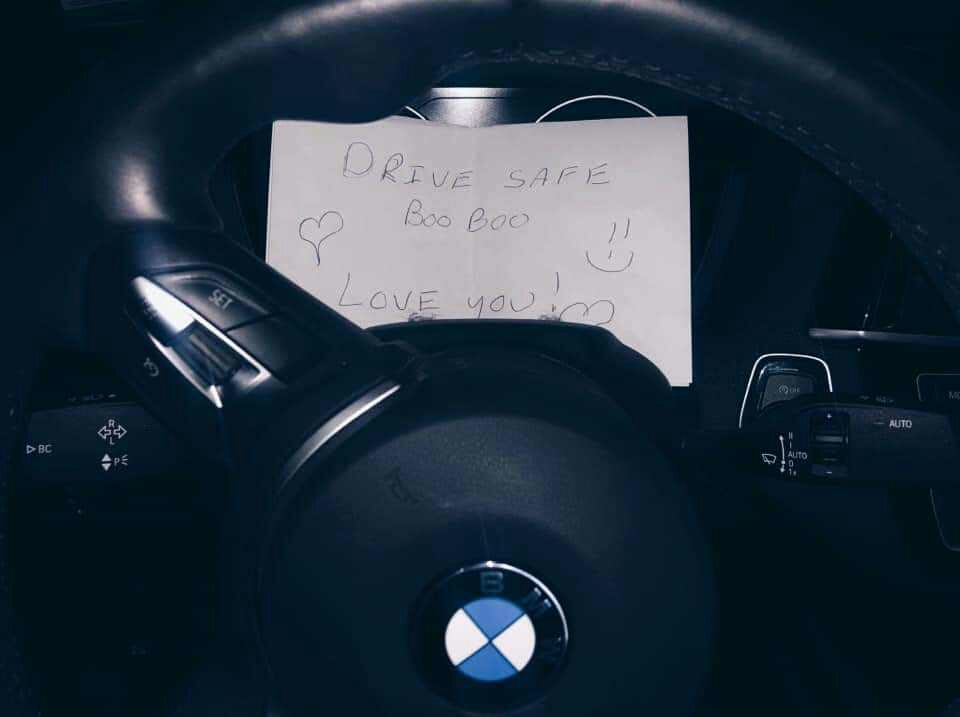 DRIVE SAFE
BOO BOO
LOVE YOU!
SET
R
L
BC
P
OFF
AUTO
II
I
AUTO
0
1x
B